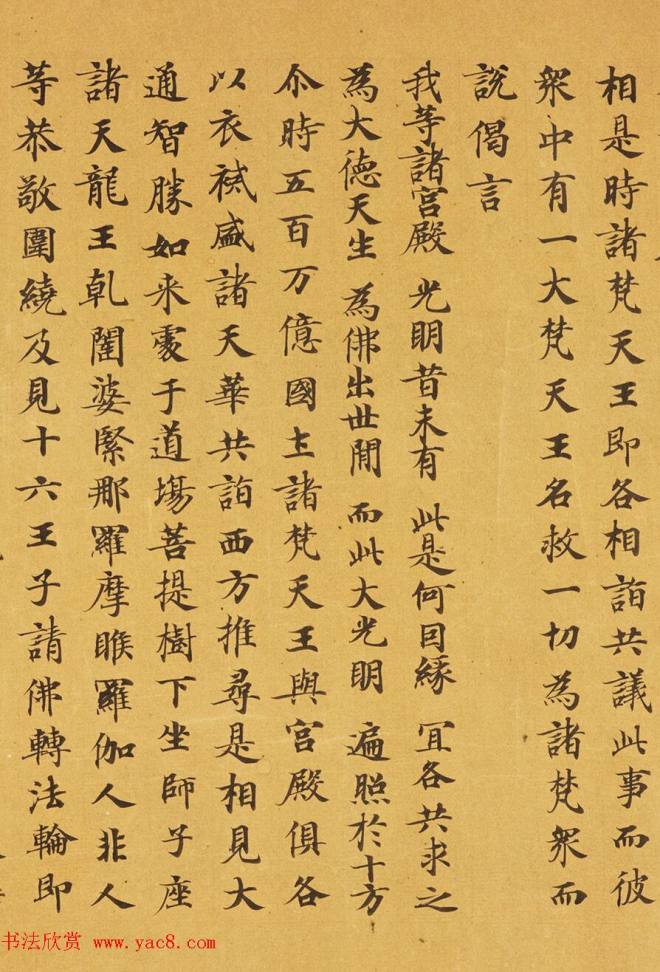 相是時諸梵天王即各相詣共議此事而彼
衆中有一大梵天王名救一切為諸梵衆而
說偈言
我等諸宮殿 光明昔未有 此是何因緣 宜各共求之
為大德天生 為佛出世間 而此大光明 遍照於十方
尒時五百万億國土諸梵天王與宮殿俱各
以衣祴盛諸天華共詣西方推尋是相見大
通智勝如来處于道場菩提樹下坐師子座
諸天龍王乹闥婆緊那羅摩睺羅伽人非人
等恭敬圍繞及見十六王子請佛轉法輪即
书法欣赏 www.yac8.com